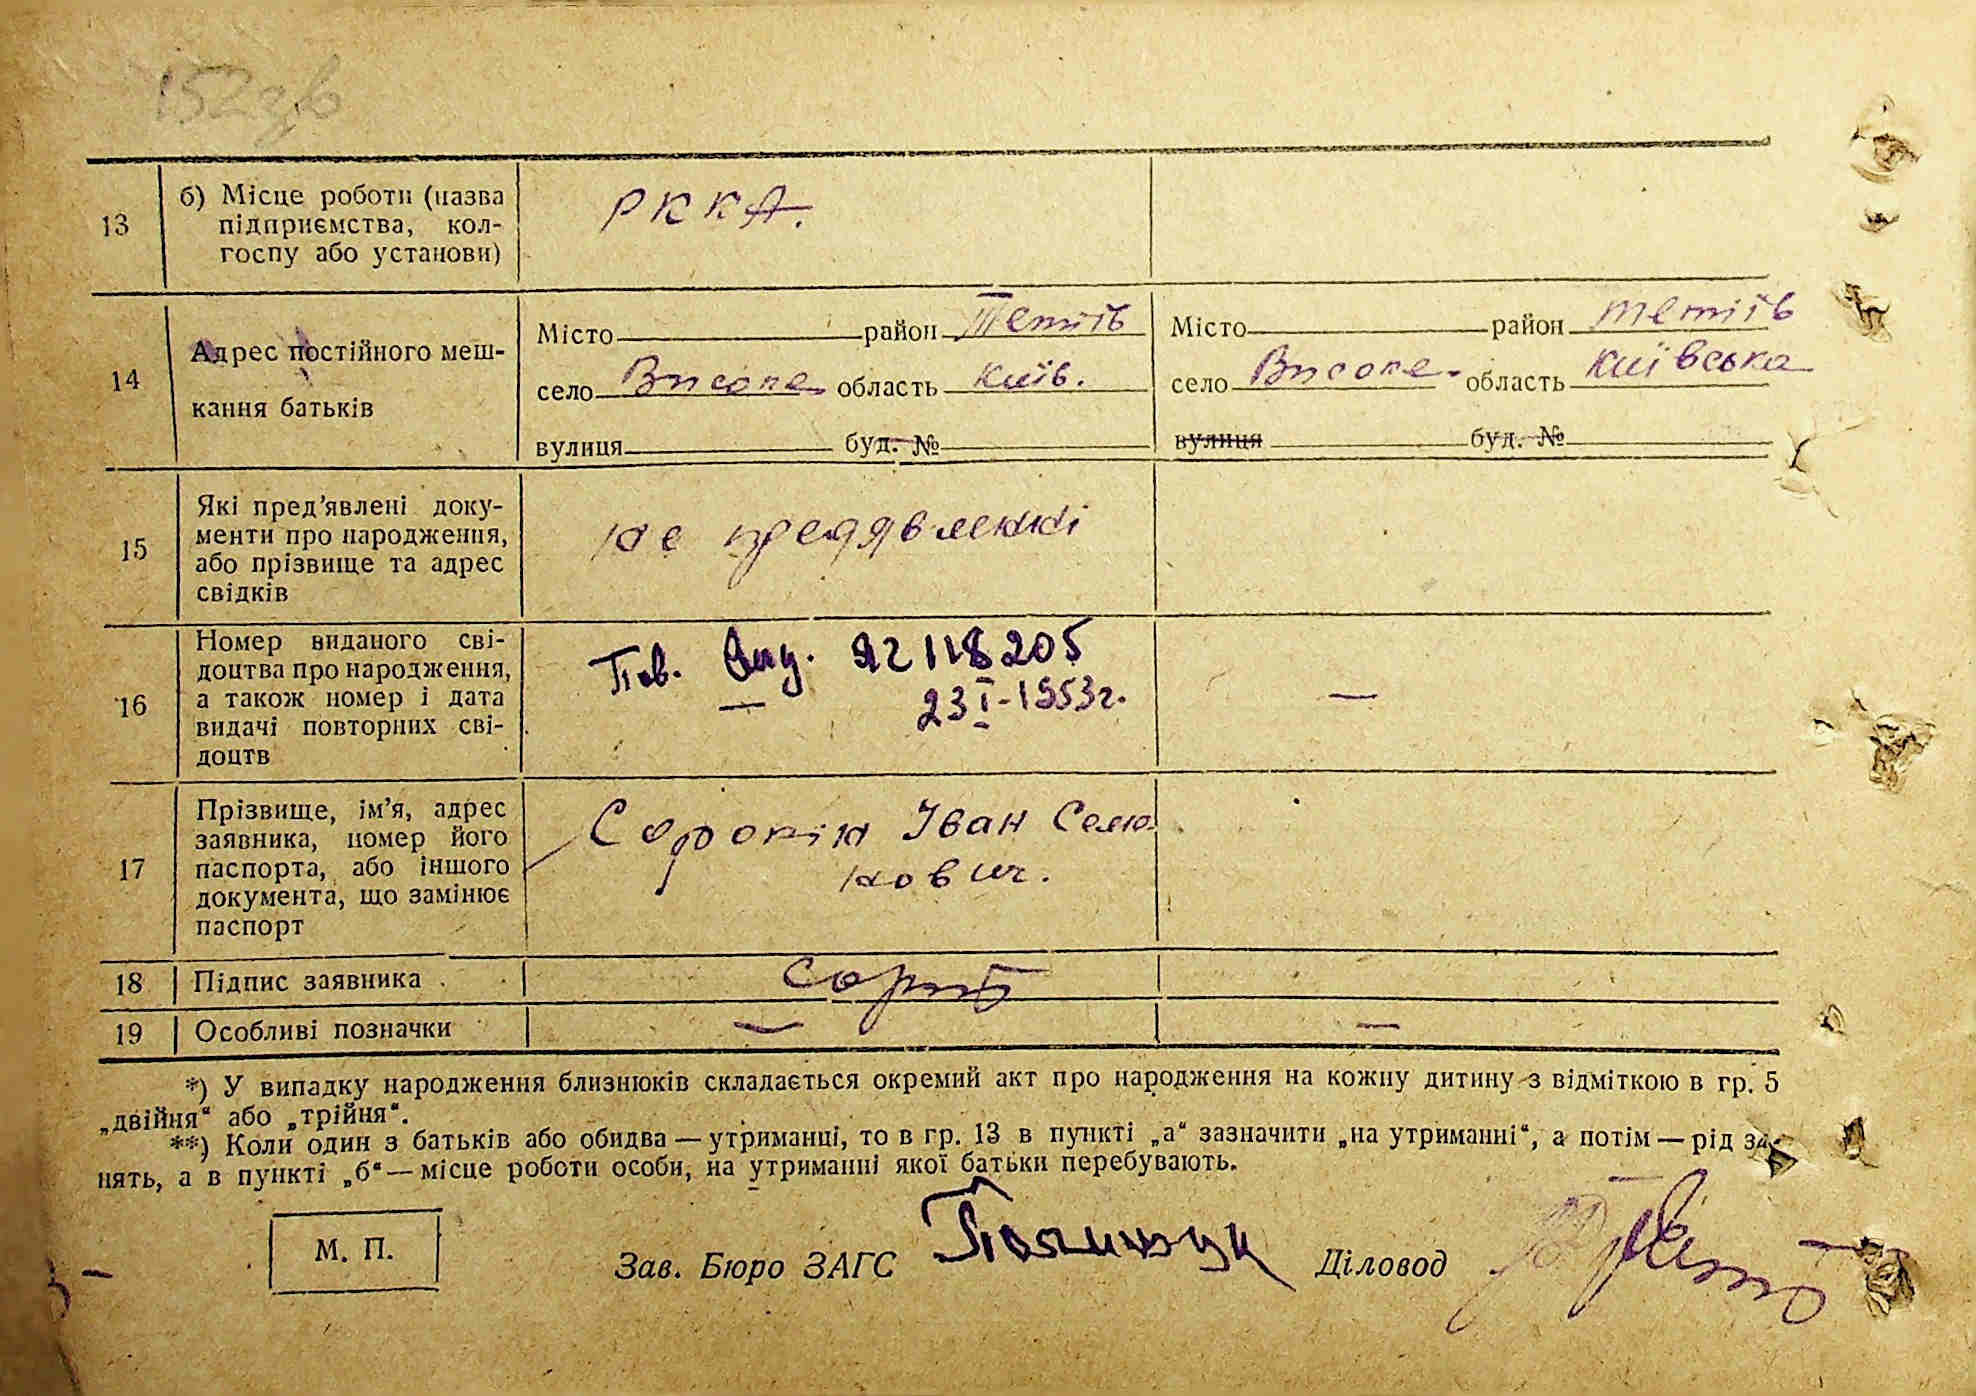 152зв
13
б) Місце роботи (назва
підприємства, кол-
госпу або установи)
РККА.
14
Адрес постійного меш-
кання батьків
Місто район Тетіїв
село Висоне область Київ.
вулиця буд. №
Місто район Тетіїв
село Висоне. область Київська
вулиця буд. №
15
Які пред'явлені доку-
менти про народження,
або прізвище та адрес
свідків
не предявленні
16
Номер виданого сві-
доцтва про народження,
а також номер і дата
видачі повторних сві-
доцтв
Пов. 118205
23 I-1953г.
—
17
Прізвище, ім'я, адрес
заявника, номер його
паспорта, або іншого
документа, що замінює
паспорт
Сорокін Іван Семе
нович.
18
Підпис заявника
19
Особливі позначки
— —
*) У випадку народження близнюків складається окремий акт про народження на кожну дитину з відміткою в гр. 5
„двійня“ або „трійня“.
**) Коли один з батьків або обидва — утриманці, то в гр. 13 в пункті „а“ зазначити „на утриманні“, а потім — рід за-
нять, а в пункті „б“ — місце роботи особи, на утриманні якої батьки перебувають.
М. П.
Зав. Бюро ЗАГС Діловод